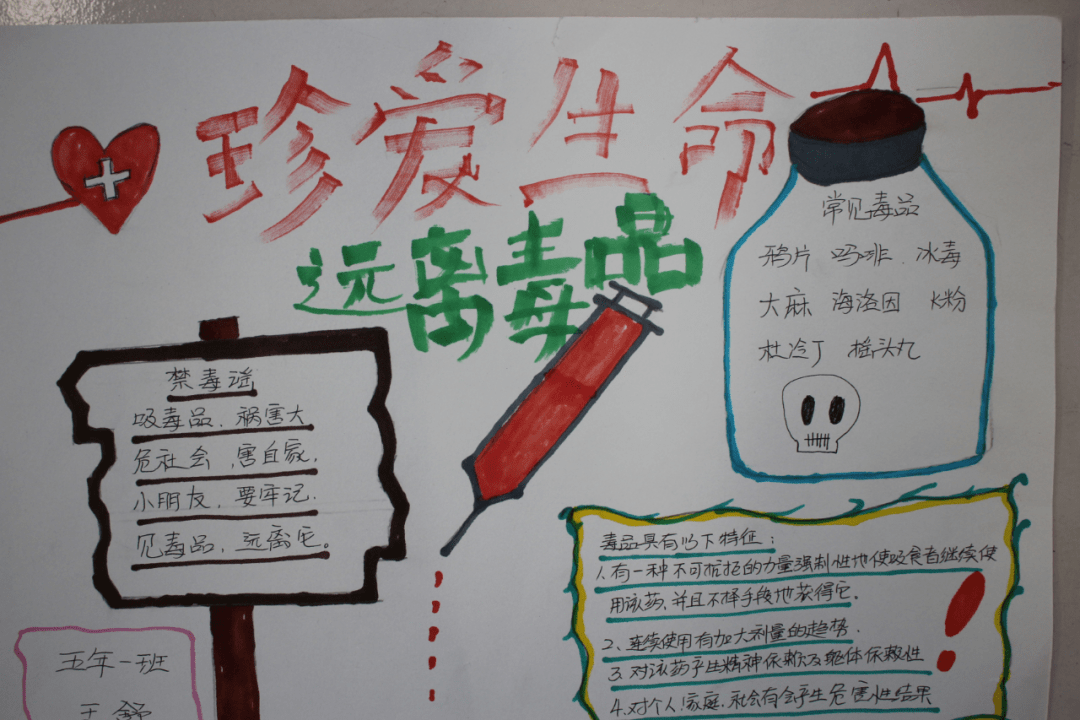 珍爱生命
远离毒品
常见毒品
鸦片 吗啡 冰毒
大麻 海洛因 K粉
杜冷丁 摇头丸
禁毒谣
吸毒品，祸害大
危社会，害自家，
小朋友，要牢记.
见毒品，远离它。
毒品具有以下特征：
1、有一种不可抗拒的力量强制性地使吸食者继续使
用该药，并且不择手段地获得它。
2、连续使用有加大剂量的趋势.
3、对该药产生精神依赖及躯体依赖性
4、对个人、家庭、社会有会产生危害性结果
五年一班
王